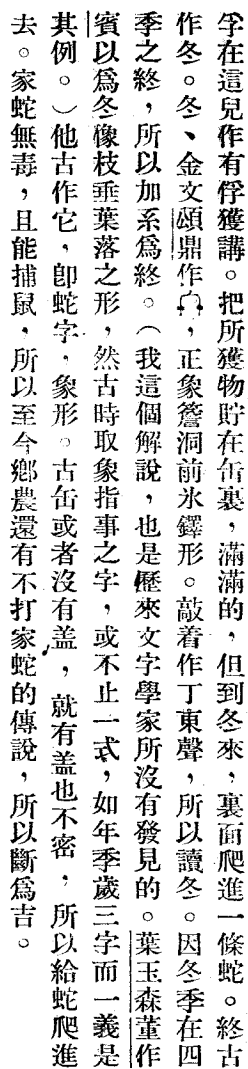 孚在這兒作有俘獲講。把所獲物貯在缶裏，滿滿的，但到冬來，裏面爬進一條蛇。終古
作冬。冬、金文頌鼎作，正象簷洞前氷鐸形。敲着作丁東聲，所以讀冬。因冬季在四
季之終，所以加系爲終。（我這個解說，也是歷來文字學家所沒有發見的。葉玉森董作
賓以爲冬像枝垂葉落之形，然古時取象指事之字，或不止一式，如年季歲三字而一義是
其例。）他古作它，卽蛇字，象形。古缶或者沒有盖，就有盖也不密，所以給蛇爬進
去。家蛇無毒，且能捕鼠，所以至今鄉農還有不打家蛇的傳說，所以斷爲吉。